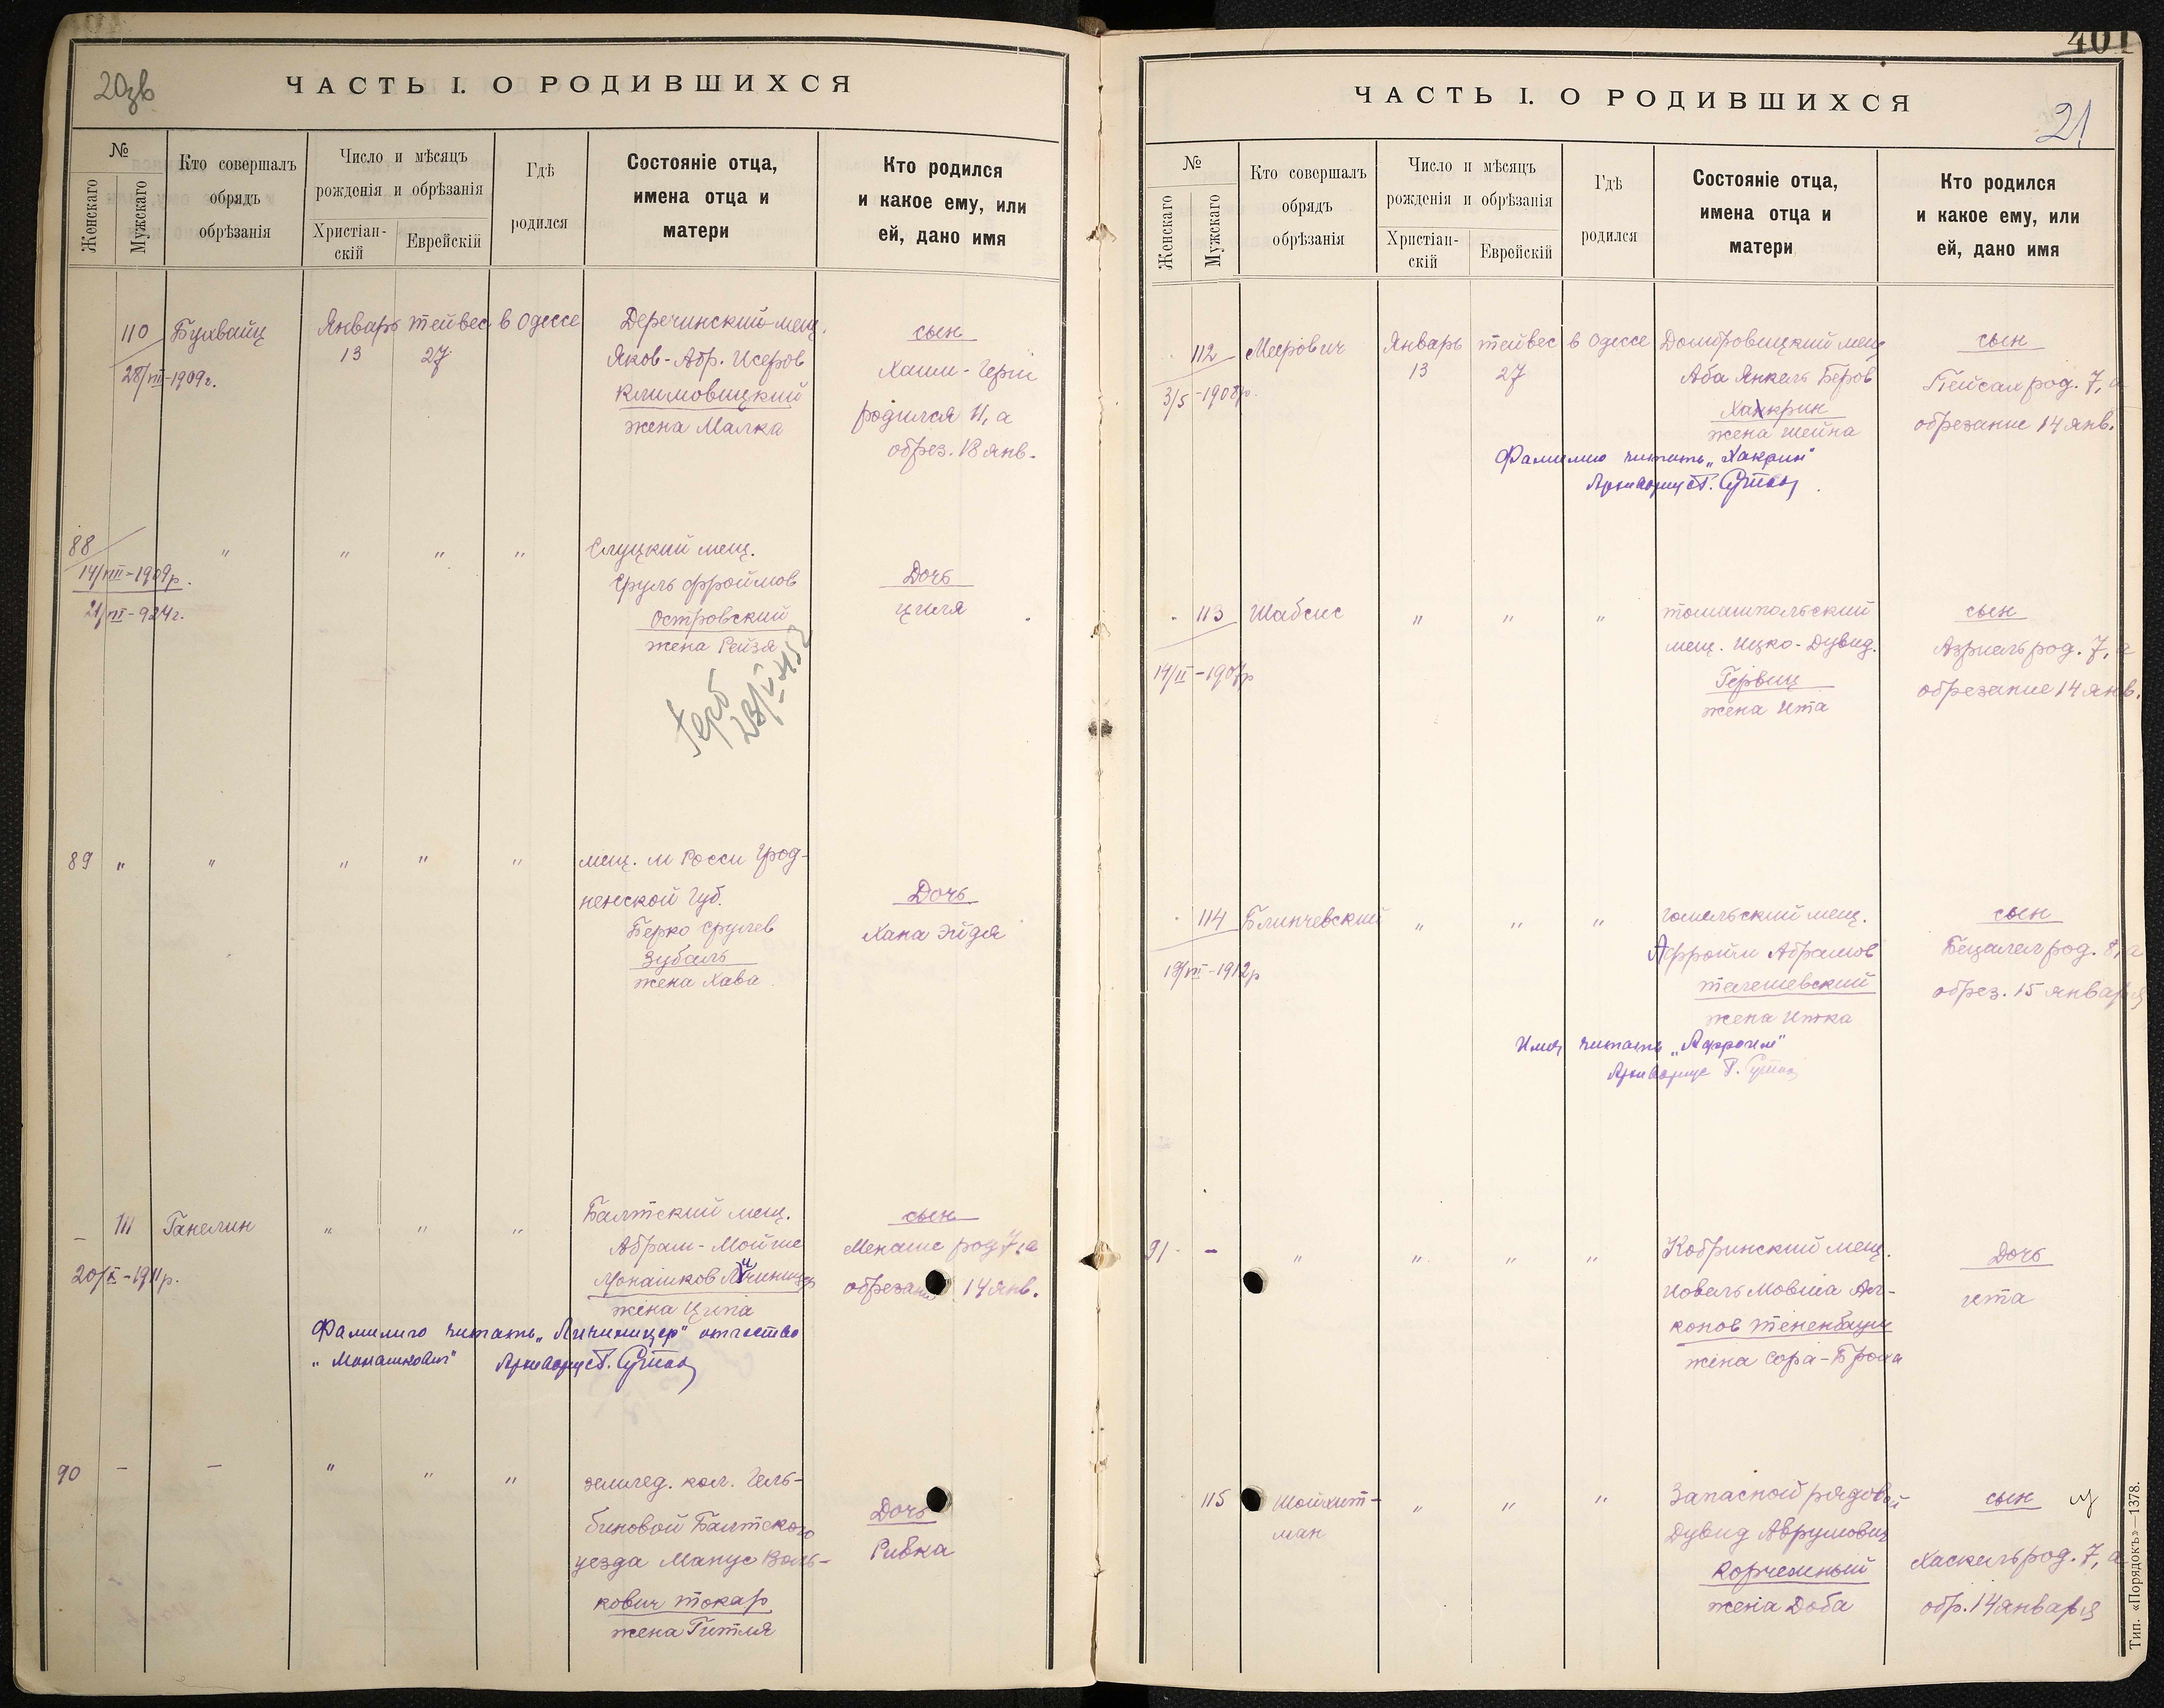 20зв
ЧАСТЬ I. О РОДИВШИХСЯ
№
Женскаго
Мужскаго
Кто совершалъ
обрядъ
обрѣзанія
Число и мѣсяцъ
рожденія и обрѣзанія
Христіан-
скій
Еврейскій
Гдѣ
родился
Состояніе отца,
имена отца и
матери
Кто родился
и какое ему, или
ей, дано имя
110 Бухвайц Январь тейвес в Одессе Деречинский мещ. сын
13 27 Яков-Абр. Исеров
28/VIII-1909г. Климовицкий
жена Малка
родился 11, а
обрез. 18 янв.
88 " " " " Слуцкий мещ.
14/VIII-1909р. Сруль Фроймов Дочь
21/VI-924г. Островский Циля
жена Рейзя
89 " " " " " мещ. м Росси Грод-
ненской Губ. Дочь
Берко Срулев Хана Эйдя
Зубаль
жена Хава
111 Ганелин " " " Балтский мещ. сын
Абрам-Мойше Менаше род 7, а
20/X-1911р. Монашков обрезан 14 янв.
жена Ципа
Фамилию читать "Личиницер" отчество
"Монашкович" Архивариус Г.
90 - - " " " землед. кол. Гель-
биновой Балтского Дочь
уезда Манус Воль- Ривка
кович Токар
жена Гитля
401
ЧАСТЬ I. О РОДИВШИХСЯ
21
№
Женскаго
Мужскаго
Кто совершалъ
обрядъ
обрѣзанія
Число и мѣсяцъ
рожденія и обрѣзанія
Христіан-
скій
Еврейскій
Гдѣ
родился
Состояніе отца,
имена отца и
матери
Кто родился
и какое ему, или
ей, дано имя
112 Меерович Январь тейвес в Одессе Домбровицкий мещ сын
13 27 Аба Янкель Беров Пейсах род. 7, а
3/5-1908р. Хакрин обрезание 14 янв.
жена Шейна
Фамилию читать "Хакрин"
Архивариус Г.
113 Шабсис " " " томашпольский сын
мещ. Ицко-Дувид. Азриель род. 7, а
14/II-1907р Гервиц обрезание 14 янв.
жена Ита
114 Блинчевский " " " гомельский мещ. сын
Афройм Абрамов Бецалел род. 8, а
19/VII-1912р обрез. 15 января
жена
Имя читать "Афроим"
Архивариус Г.
91 - " " " " Кобринский мещ. Дочь
Новель Мовша Ал- Ита
конов Тененбаум
жена Сора-Броня
115 Шойхит- " " " Запасной рядовой сын
ман Дувид Аврумович
Корчемный Хаскель род. 7, а
жена Доба обр. 14 января
Тип. «Порядокъ»—1378.